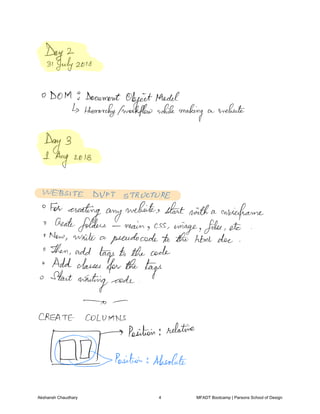 Day 2
31 July 2018
DOM : Document Object Model
↳ Hierarchy / workflow while making a website
Day 3
1 Aug 2018
WEBSITE DVPT STRUCTURE
For creating any website, start with a wireframe
Create folders — main, css, image, files, etc.
Now, write a pseudocode to the html doc.
Then, add tags to the code
Add classes for the tags
Start writing code
CREATE COLUMNS
→ Position : relative
→ Position : Absolute
Akshansh Chaudhary 4 MFADT Bootcamp | Parsons School of Design